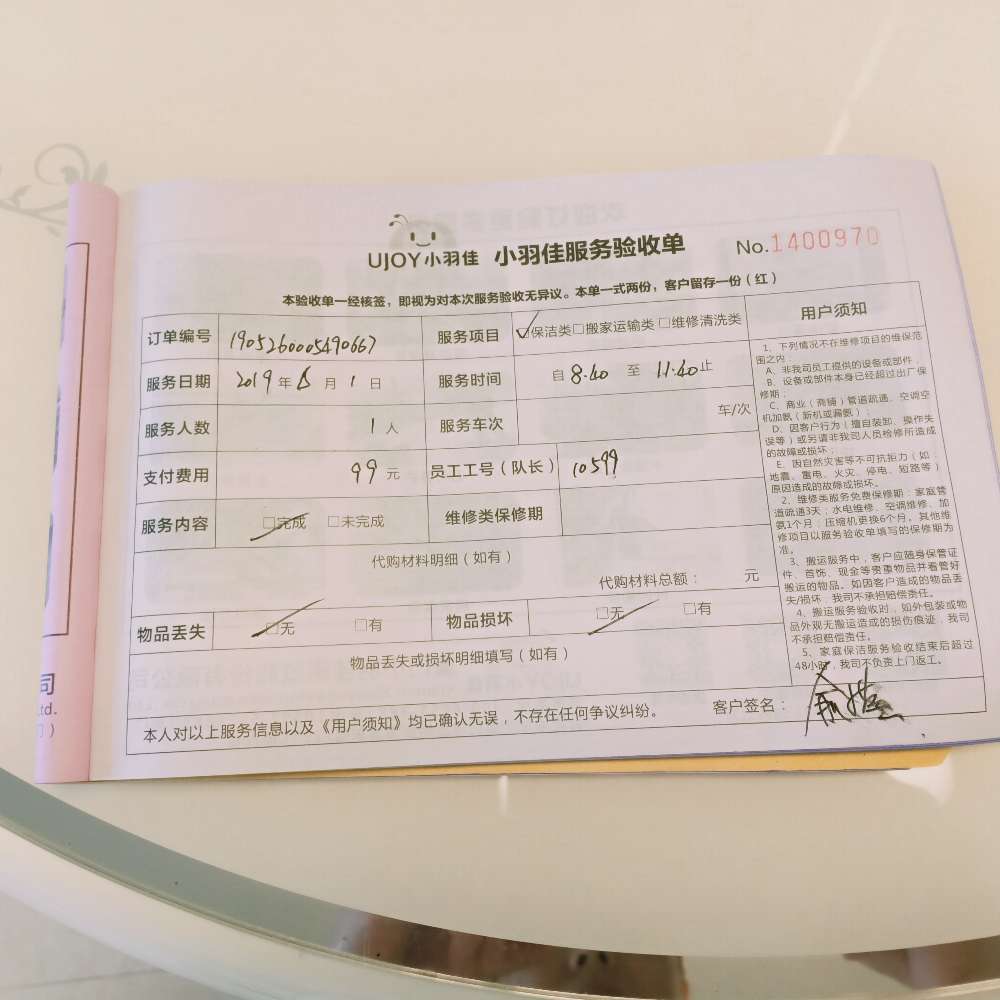 UJOY小羽佳 小羽佳服务验收单 No.1400970
本验收单一经核签，即视为对本次服务验收无异议。本单一式两份，客户留存一份（红）
订单编号 1905260005490667 服务项目 ☑保洁类□搬家运输类□维修清洗类
服务日期 2019年 月1日 服务时间 自8.40至11.40止
服务人数 1人 服务车次 车/次
支付费用 99元 员工工号（队长） 10599
服务内容 ☑完成 □未完成 维修类保修期
代购材料明细（如有）
代购材料总额： 元
物品丢失 ☑无 □有 物品损坏 ☑无 □有
物品丢失或损坏明细填写（如有）
本人对以上服务信息以及《用户须知》均已确认无误，不存在任何争议纠纷。 客户签名：
用户须知
1、下列情况不在维修项目的维保范
围之内：
A、非我司员工提供的设备或部件，
B、设备或部件本身已经超过出厂保
修期；
C、商业（商铺）管道疏通、空调空
机加氨（新机或漏氨）；
D、因客户行为（擅自装卸、操作失
误等）或另请非我司人员检修所造成
的故障或损坏；
E、因自然灾害等不可抗拒力（如：
地震、雷电、火灾、停电、短路等）
原因造成的故障或损坏。
2、维修类服务免费保修期：家庭管
道疏通3天；水电维修、空调维修、加
氨1个月；压缩机更换6个月。其他维
修项目以服务验收单填写的保修期为
准。
3、搬运服务中，客户应随身保管证
件、首饰、现金等贵重物品并看管好
搬运的物品。如因客户造成的物品丢
失/损坏，我司不承担赔偿责任。
4、搬运服务验收时，如外包装或物
品外观无搬运造成的损伤痕迹，我司
不承担赔偿责任。
5、家庭保洁服务验收结束后超过
48小时，我司不负责上门返工。
司
td.